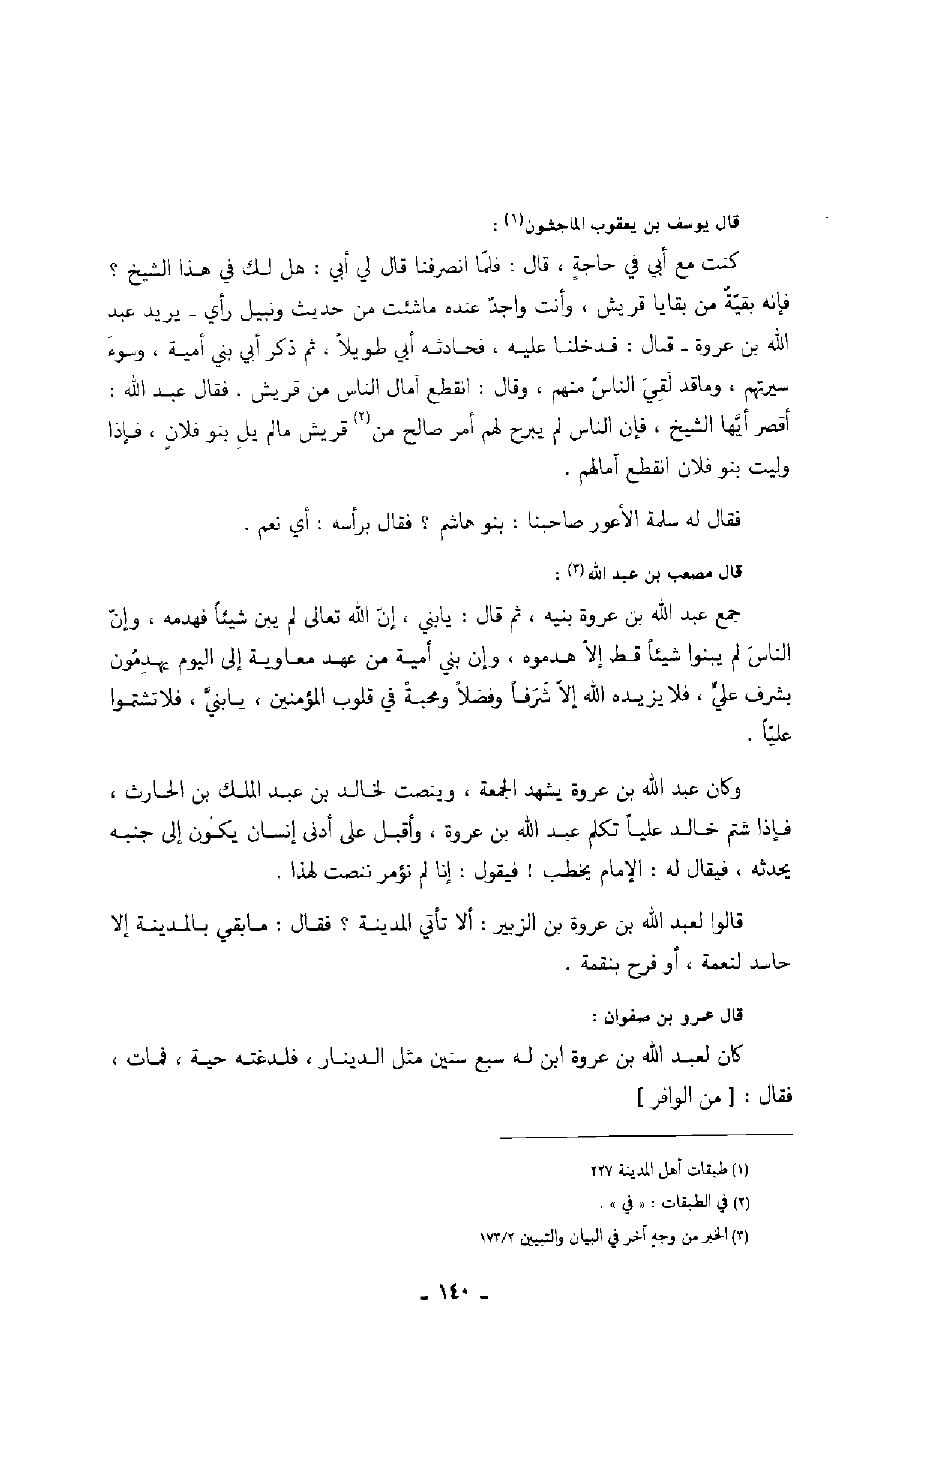 قال يوسف بن يعقوب الماجشون(١) :
كنت مع أبي في حاجةٍ ، قال : فلمّا انصرفنا قال لي أبي : هل لك في هذا الشيخ ؟
فإنه بقيّةٌ من بقايا قريش ، وأنت واجدٌ عنده ماشئت من حديث ونبيل رأي ـ يريد عبد
الله بن عروة ـ قال : فدخلنا عليه ، فحادثه أبي طويلاً ، ثم ذكر أبي بني أمية ، وسوءَ
سيرتهم ، وماقد لَقِيَ الناسُ منهم ، وقال : انقطع آمال الناس من قريش . فقال عبد الله :
أقصر أيُّها الشيخ ، فإن الناس لم يبرح لهم أمر صالح من(٢) قريش مالم يلِ بنو فلانٍ ، فإذا
وليت بنو فلان انقطع آمالهم .
فقال له سلمة الأعور صاحبنا : بنو هاشم ؟ فقال برأسه : أي نعم .
قال مصعب بن عبد الله(٣) :
جمع عبد الله بن عروة بنيه ، ثم قال : يابني ، إنّ الله تعالى لم يبن شيئاً فهدمه ، وإنّ
الناسَ لم يبنوا شيئاً قط إلاّ هدموه ، وإن بني أمية من عهد معاوية إلى اليوم يهدِمُون
بشرف عليٍّ ، فلا يزيده الله إلاّ شَرَفاً وفضلاً ومحبةً في قلوب المؤمنين ، يابنيَّ ، فلا تشتموا
عليّاً .
وكان عبد الله بن عروة يشهد الجمعة ، وينصت لخالد بن عبد الملك بن الحارث ،
فإذا شتم خالد علياً تكلم عبد الله بن عروة ، وأقبل على أدنى إنسان يكون إلى جنبه
يحدثه ، فيقال له : الإمام يخطب ! فيقول : إنا لم نؤمر ننصت لهذا .
قالوا لعبد الله بن عروة بن الزبير : ألا تأتي المدينة ؟ فقال : مابقي بالمدينة إلا
حاسد لنعمة ، أو فرح بنقمة .
قال عمرو بن صفوان :
كان لعبد الله بن عروة ابن له سبع سنين مثل الدينار ، فلدغته حية ، فمات ،
فقال : [ من الوافر ]
(١) طبقات أهل المدينة ٢٢٧
(٢) في الطبقات : « في » .
(٣) الخبر من وجهٍ آخر في البيان والتبيين ١٧٣/٢
ـ ١٤٠ ـ